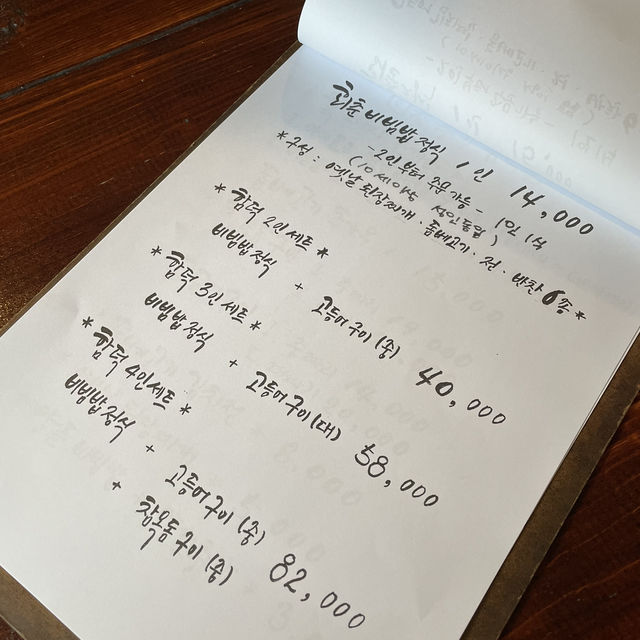 회춘비빔밥정식 1인 14,000
-2인부터 주문가능- 1인 1식
(10세이상 성인동일)
*구성: 옛날된장찌개·돔베고기·전·반찬 6종*
*합덕 2인세트*
비빔밥정식 + 고등어구이(중) 40,000
*합덕 3인세트*
비빔밥정식 + 고등어구이(대) 58,000
*합덕 4인세트*
비빔밥정식 + 고등어구이(중)
+ 참옥돔구이(중) 82,000